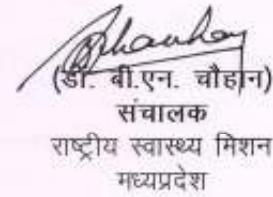 (डॉ. बी.एन. चौहान)
संचालक
राष्ट्रीय स्वास्थ्य मिशन
मध्यप्रदेश